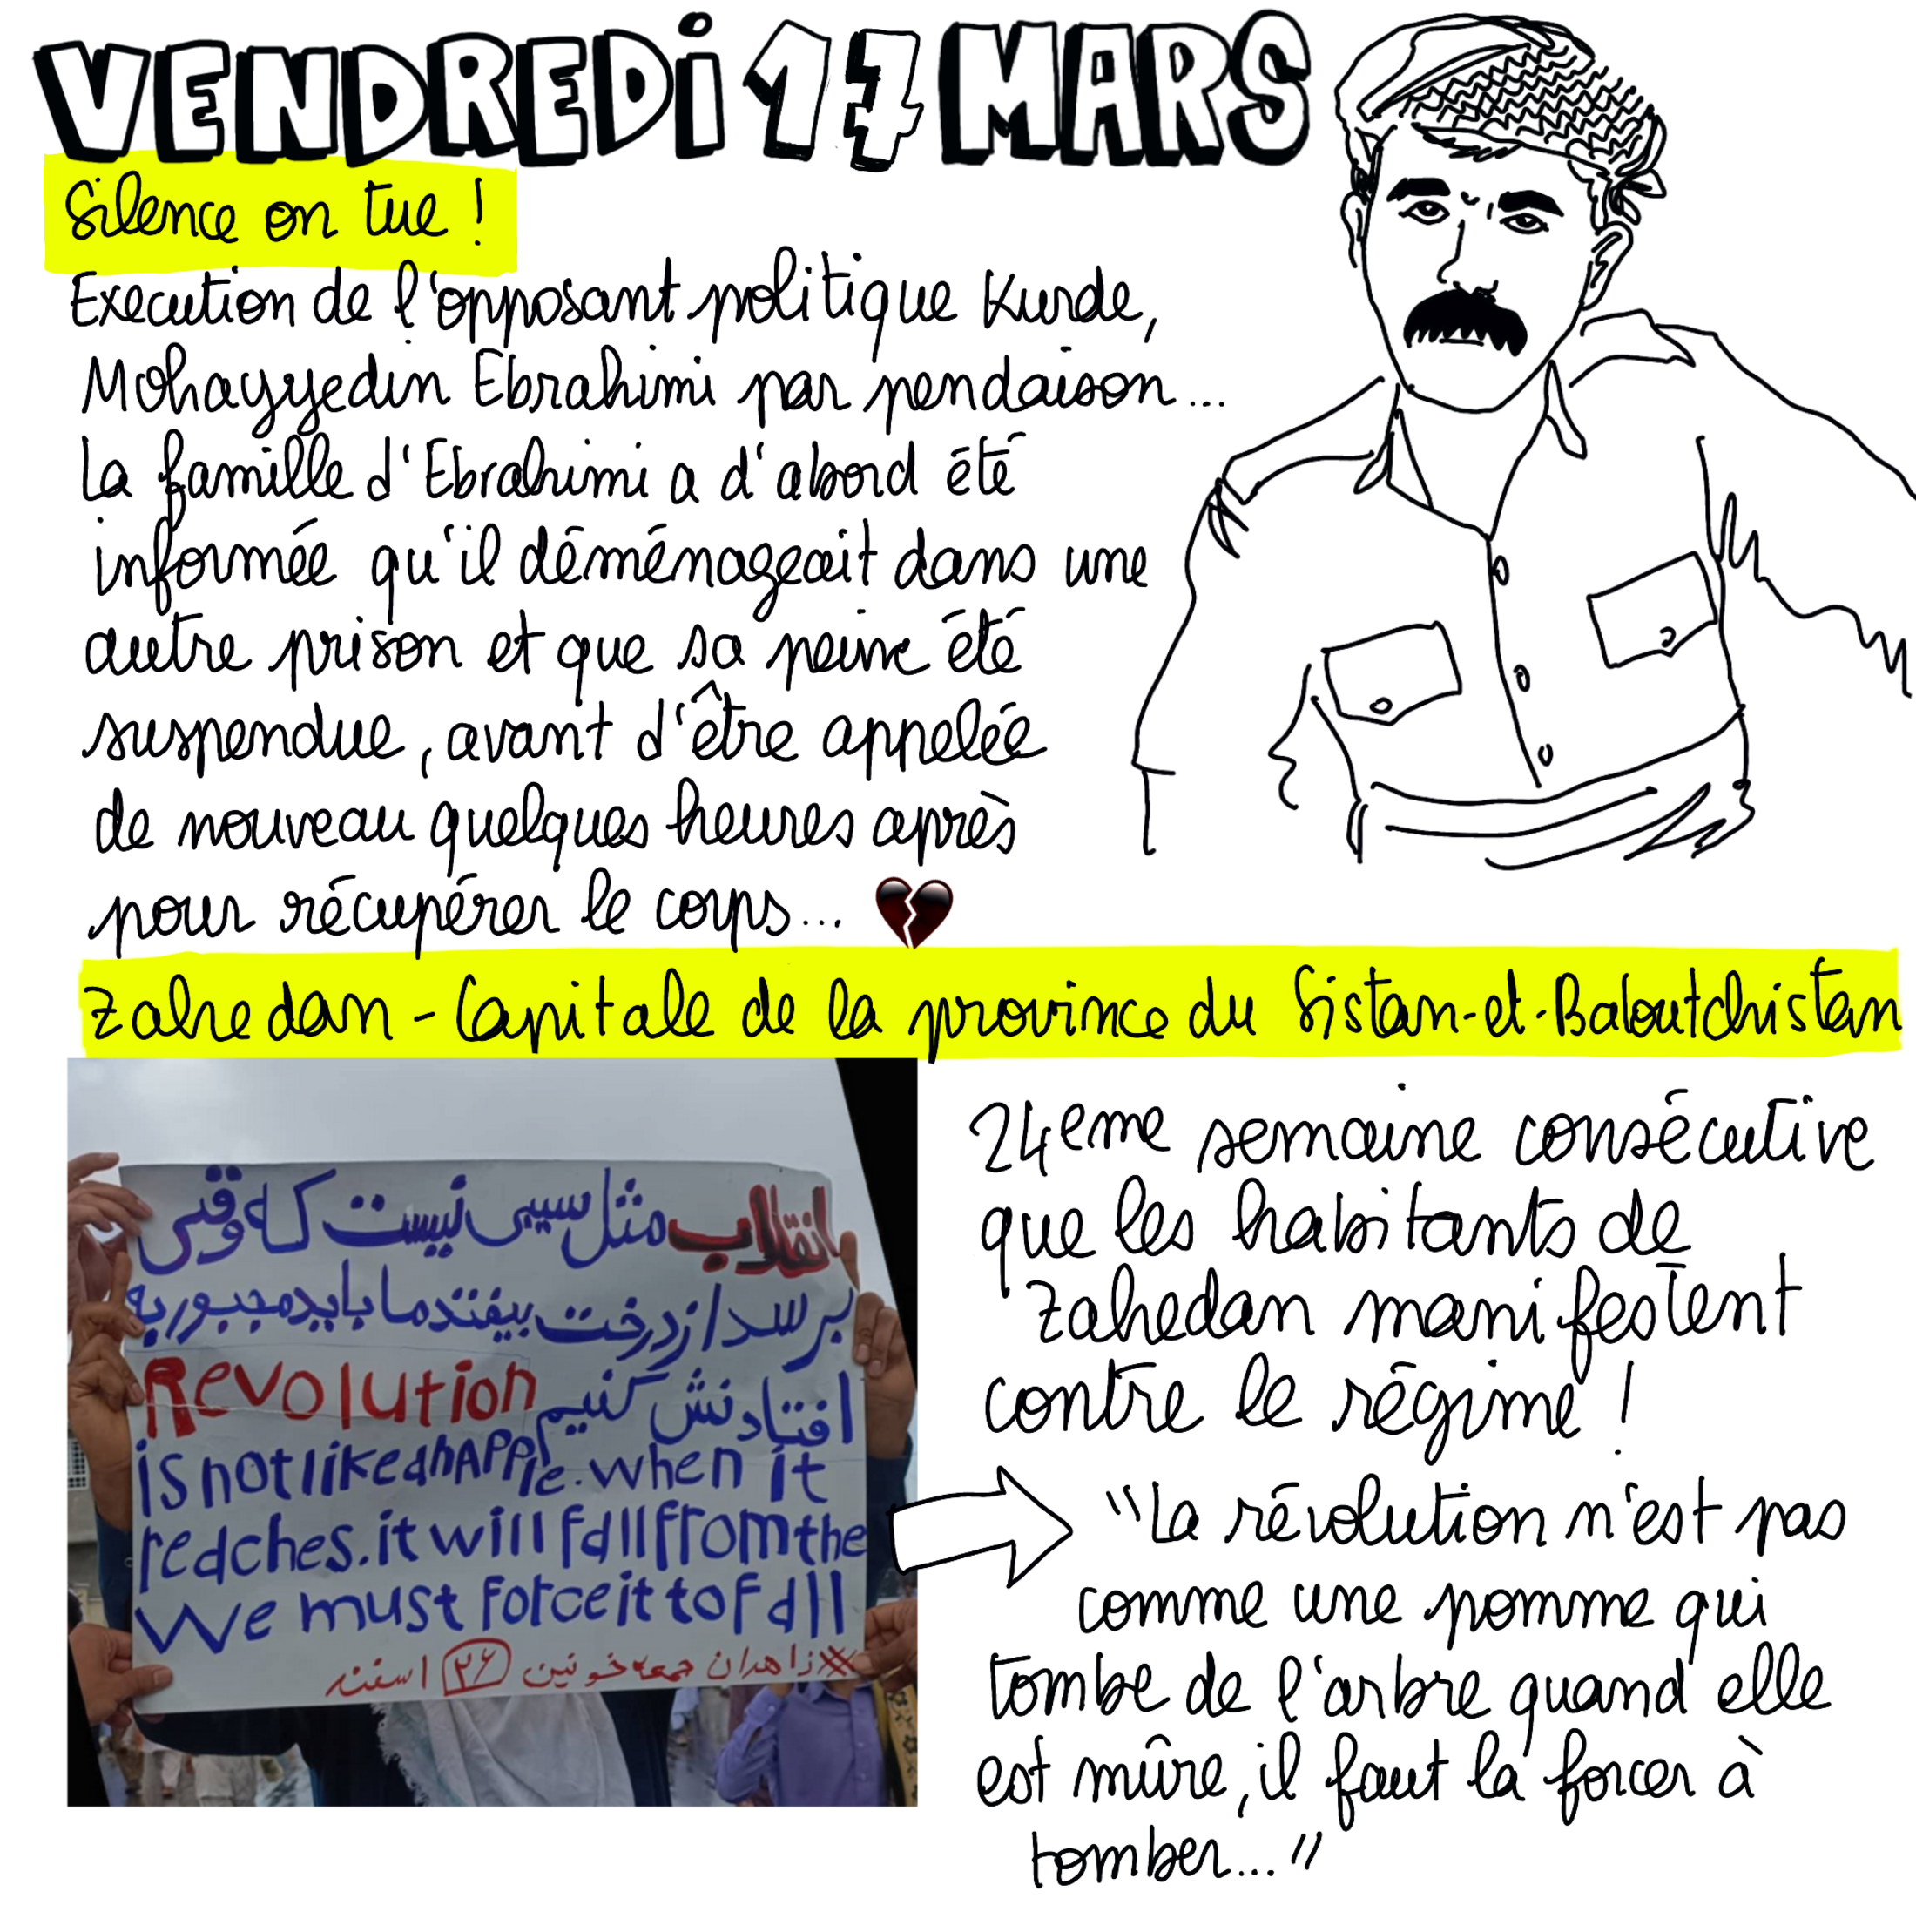 VENDREDI 17 MARS
Silence on tue !
Execution de l'opposant politique Kurde,
Mohayyedin Ebrahimi par pendaison...
La famille d'Ebrahimi a d'abord été
informée qu'il déménageait dans une
autre prison et que sa peine été
suspendue, avant d'être appelée
de nouveau quelques heures après
pour récupérer le corps...
Zahedan - Capitale de la province du Sistan-et-Baloutchistan
انقلاب مثل سیبی نیست که وقتی
برسد از درخت بیفتد ما باید مجبور به
افتادنش کنیم
Revolution
is not like an Apple. when it
reaches. it will fall from the
We must force it to fall
#زاهدان جمعه خونین ۲۶ اسفند
24eme semaine consécutive
que les habitants de
Zahedan manifestent
contre le régime !
"La révolution n'est pas
comme une pomme qui
tombe de l'arbre quand elle
est mûre, il faut la forcer à
tomber..."